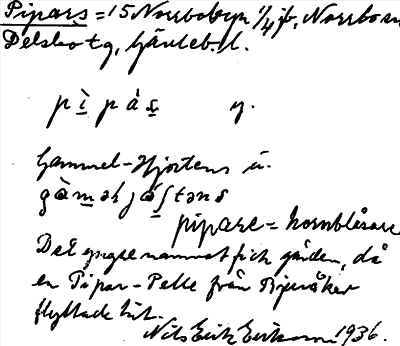 Pipars = 15 Norrbobyn 1/4 jb, Norrbo sn
Delsbo tg, Gävleb. l.
y.
Gammel-Hjortens u.
pipare = hornblåsare
Det yngre namnet fick gården, då
en Pipar-Pelle från Bjuråker
flyttade hit.
Nils Erik Eriksson 1936.